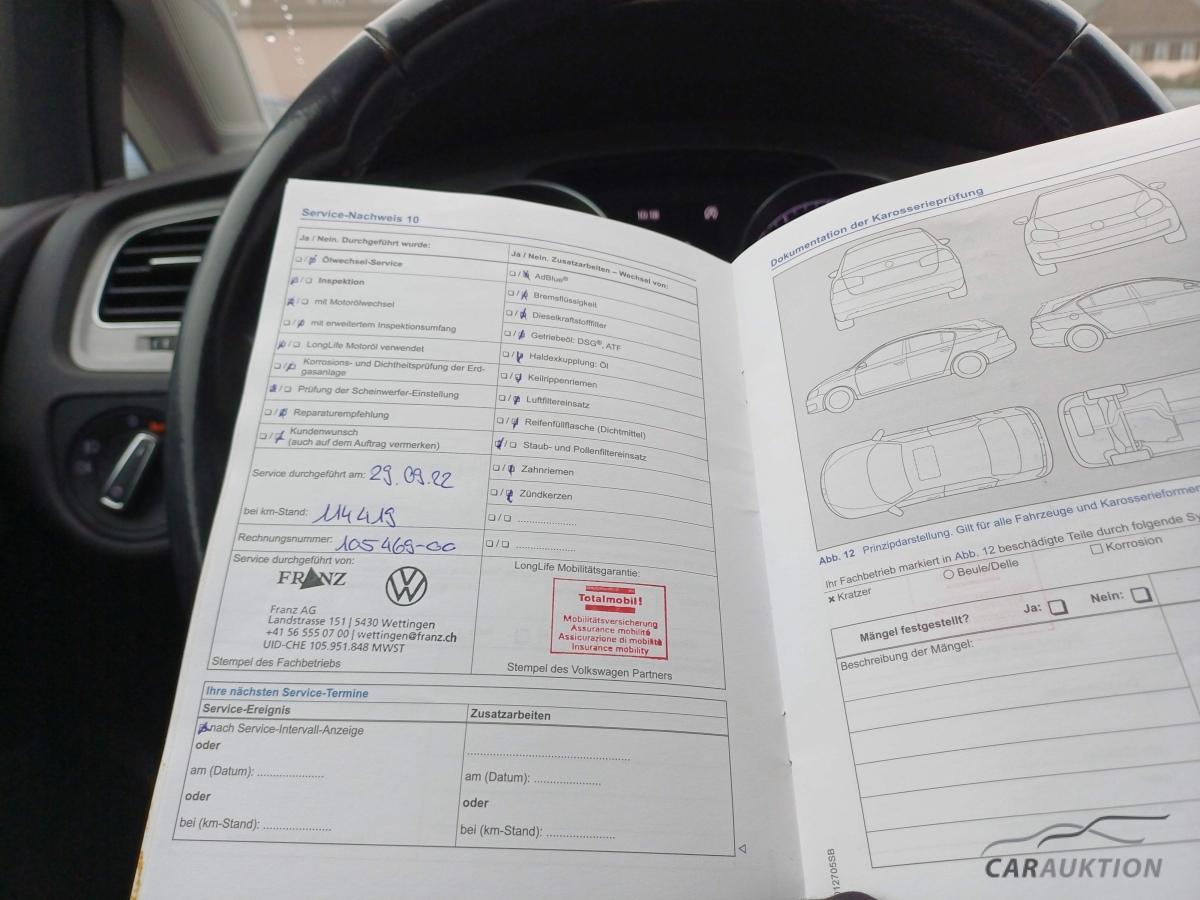 Service-Nachweis 10
Ja / Nein. Durchgeführt wurde:
Ölwechsel-Service
Inspektion
mit Motorölwechsel
mit erweitertem Inspektionsumfang
LongLife Motoröl verwendet
Korrosions- und Dichtheitsprüfung der Erd-
gasanlage
Prüfung der Scheinwerfer-Einstellung
Reparaturempfehlung
Kundenwunsch
(auch auf dem Auftrag vermerken)
Service durchgeführt am: 29.09.22
bei km-Stand: 114419
Rechnungsnummer: 105469-00
Service durchgeführt von:
FRANZ
Franz AG
Landstrasse 151 | 5430 Wettingen
+41 56 555 07 00 | wettingen@franz.ch
UID-CHE 105.951.848 MWST
Stempel des Fachbetriebs
Ja / Nein. Zusatzarbeiten – Wechsel von:
AdBlue®
Bremsflüssigkeit
Dieselkraftstofffilter
Getriebeöl: DSG®, ATF
Haldexkupplung: Öl
Keilrippenriemen
Luftfiltereinsatz
Reifenfüllflasche (Dichtmittel)
Staub- und Pollenfiltereinsatz
Zahnriemen
Zündkerzen
LongLife Mobilitätsgarantie:
Totalmobil!
Mobilitätsversicherung
Assurance mobilité
Assicurazione di mobilità
Insurance mobility
Stempel des Volkswagen Partners
Ihre nächsten Service-Termine
Service-Ereignis
nach Service-Intervall-Anzeige
oder
am (Datum): ....................
oder
bei (km-Stand): ....................
Zusatzarbeiten
am (Datum): ....................
oder
bei (km-Stand): ....................
Dokumentation der Karosserieprüfung
Abb. 12 Prinzipdarstellung. Gilt für alle Fahrzeuge und Karosserieformen
Ihr Fachbetrieb markiert in Abb. 12 beschädigte Teile durch folgende
× Kratzer
Beule/Delle
Korrosion
Mängel festgestellt?
Ja:
Nein:
Beschreibung der Mängel:
012705SB
CARAUKTION